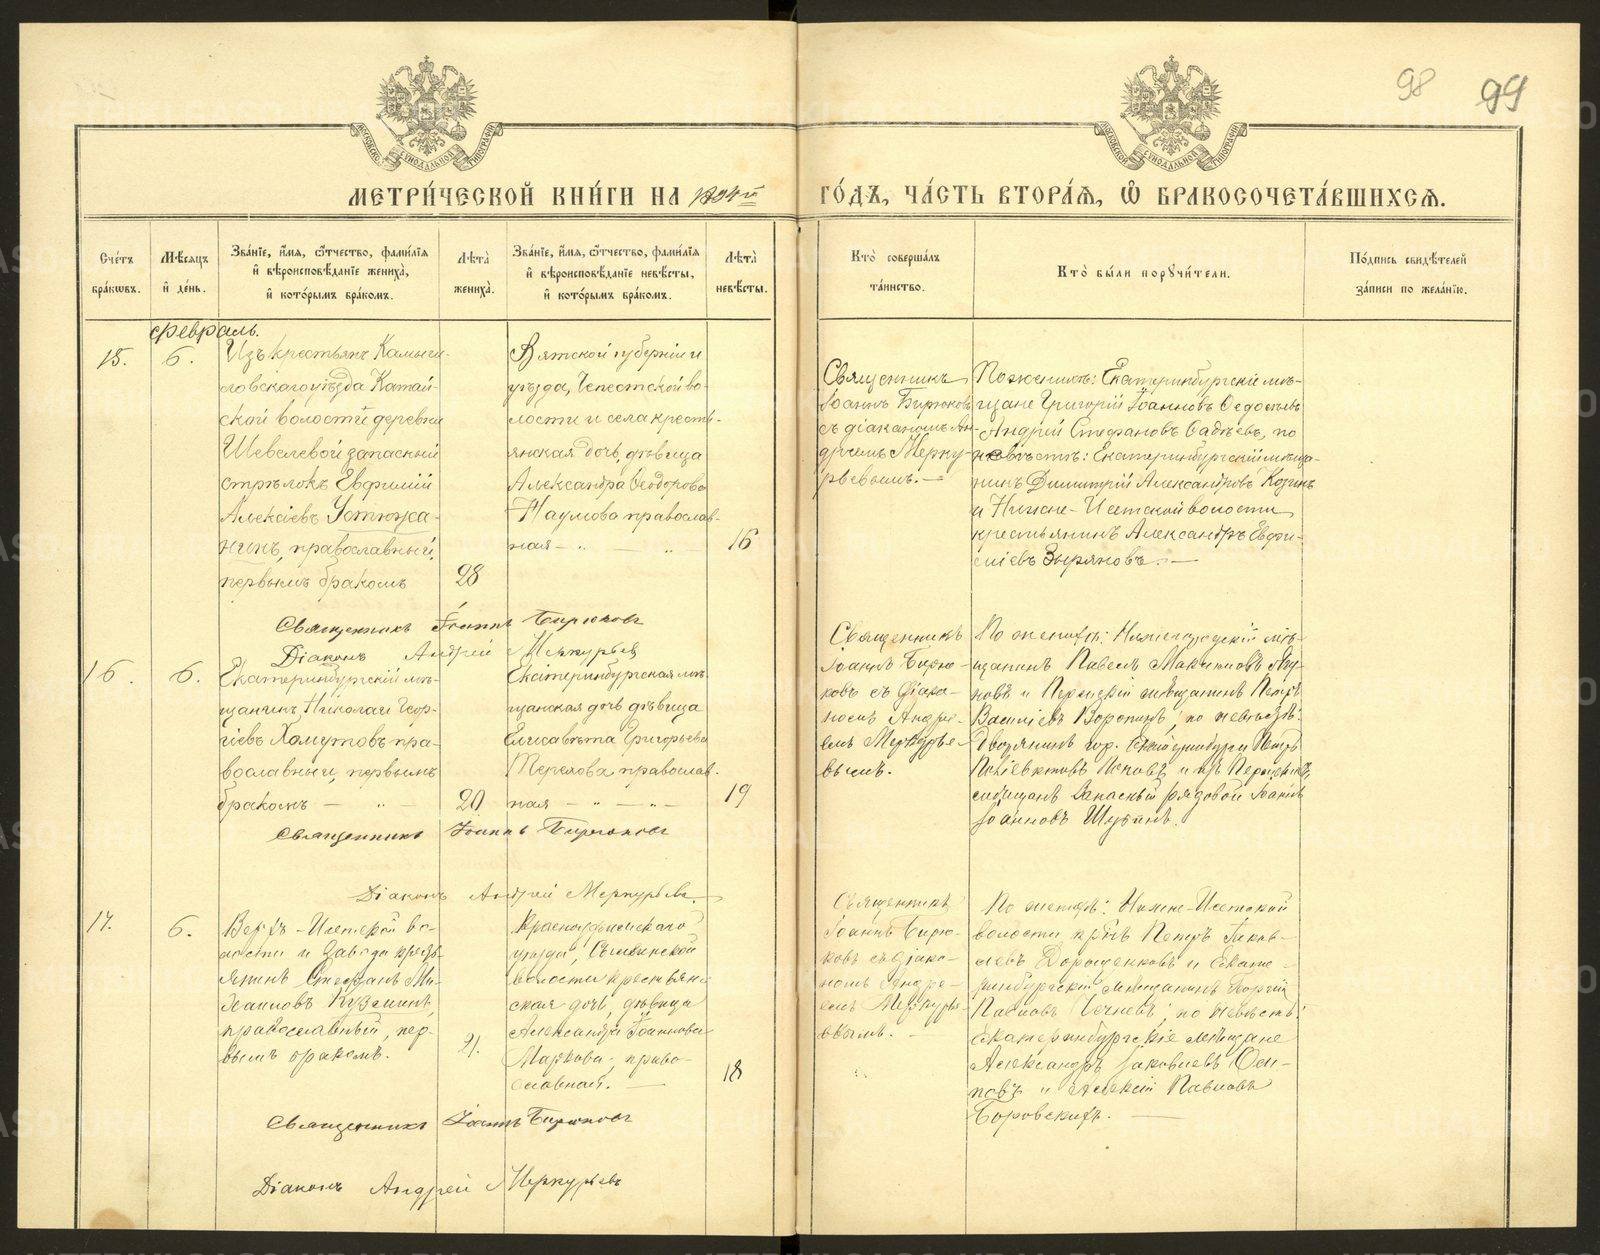 98 99
МЕТРИ́ЧЕСКОЙ КНИ́ГИ НА 1894й ГО́ДЪ, ЧА́СТЬ ВТОРА́Я, Ѽ БРАКОСОЧЕТА́ВШИХСѦ.
Сче́тъ бра́кѡвъ.
Мѣ́сяцъ и́ де́нь.
Зва́нїе, и́мя, ѻ́тчество, фами́лїя и́ вѣроисповѣ́данїе жениха̀, и́ кото́рымъ бра́комъ.
Лѣта̀ жениха̀.
Зва́нїе, и́мя, ѻ́тчество, фами́лїя и́ вѣроисповѣ́данїе невѣ́сты, и́ кото́рымъ бра́комъ.
Лѣта̀ невѣ́сты.
Кто̀ соверша́лъ та́инство.
Кто̀ бы́ли порꙋчи́тели.
По́дпись свидѣ́телей за́писи по жела́нїю.
Февраль.
15.
6.
Изъ крестьянъ Камыш-
ловскаго уѣзда Катай-
ской волости деревни
Шевелевой запасный
стрѣлокъ Евфимій
Алексіевъ Устюжа-
нинъ, православный,
первымъ бракомъ
28
Вятской губерніи и
уѣзда, волости и села кресть-
янская дочь, дѣвица
Александра Ѳеодорова
Наумова православ-
ная — „ — „ —
16
Священникъ
Іоаннъ Бирюковъ
съ діакономъ Ан-
дреемъ Мерку-
рьевымъ. —
По женихѣ: Екатеринбургскіе мѣ-
щане Григорій Іоанновъ Ѳедосѣевъ
Андрей Стефановъ, по
невѣстѣ: Екатеринбургскій мѣща-
нинъ Димитрій Александровъ Козинъ
и Нижне-Исетской волости
крестьянинъ Александръ Евфи-
міевъ Зыряновъ. —
Священникъ Іоаннъ Бирюковъ
Діаконъ Андрей Меркурьевъ
16.
6.
Екатеринбургскій мѣ-
щанинъ Николай Геор-
гіевъ Хомутовъ пра-
вославный, первымъ
бракомъ — „ —
20
Екатеринбургская мѣ-
щанская дочь дѣвица
Елисавета Григорьева
Терехова православ-
ная — „ — „ —
19
Священникъ
Іоаннъ Бирю-
ковъ съ діако-
номъ Андре-
емъ Меркурье-
вымъ.
По женихѣ: Нижегородскій мѣ-
щанинъ Павелъ Максимовъ
и Пермскій мѣщанинъ Петръ
Василіевъ Воронцовъ, по невѣстѣ:
Дворянинъ гор. Екатеринбурга Петръ
Поповъ и изъ Пермскихъ
мѣщанъ Запасный рядовой Іоаннъ
Іоанновъ
Священникъ Іоаннъ Бирюковъ
Діаконъ Андрей Меркурьевъ.
17.
6.
Верхъ-Исетской во-
лости и завода кресть-
янинъ Стефанъ Ми-
хаиловъ Кузьминъ,
православный, пер-
вымъ бракомъ.
21.
Красноуфимскаго
уѣзда, волости крестьян-
ская дочь, дѣвица
Александра Іоаннова
Маркова, право-
славная. —
18
Священникъ
Іоаннъ Бирю-
ковъ съ діако-
номъ Андре-
емъ Меркурь-
евымъ. —
По женихѣ: Нижне-Исетской
волости кр-нъ Петръ Іаков-
левъ Дорощенковъ и Екате-
ринбургскій мѣщанинъ Георгій
Павловъ; по невѣстѣ:
Екатеринбургскіе мѣщане
Александръ Іаковлевъ Оси-
повъ и Алексій Павловъ
Боровскихъ. —
Священникъ Іоаннъ Бирюковъ
Діаконъ Андрей Меркурьевъ